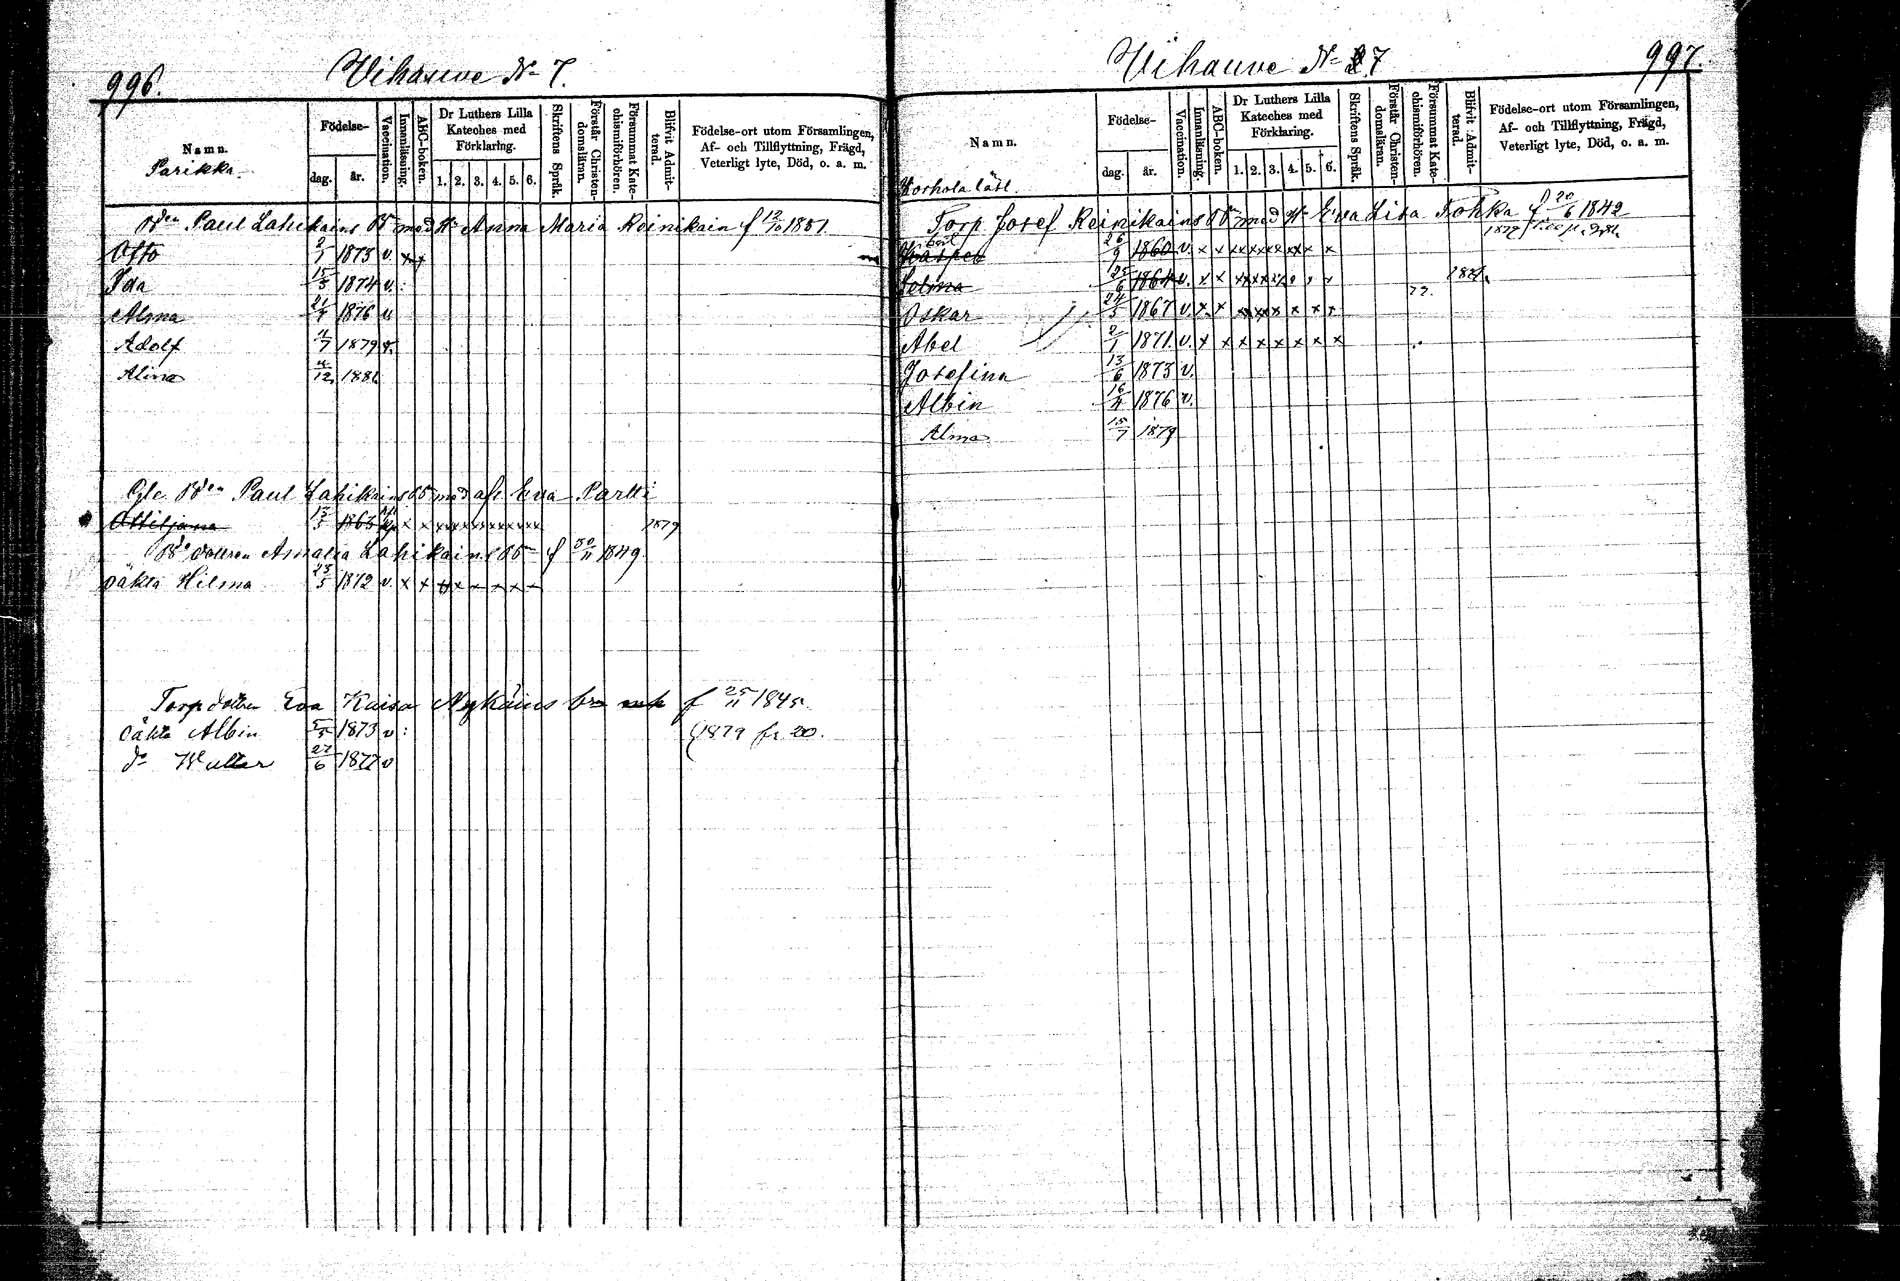 996.
Vihauvo No 7.
Namn.
Parikka.
Födelse-
dag.
år.
Vaccination.
Innanläsning.
ABC-boken.
Dr Luthers Lilla Kateches med Förklaring.
1. 2. 3. 4. 5. 6.
Skriftens Språk.
Förstår Christendomsläran.
Försummat Katechismiförhören.
Blifvit Admitterad.
Födelse-ort utom Församlingen,
Af- och Tillflyttning, Frägd,
Veterligt lyte, Död, o. a. m.
Bden Paul Lahikains Bbn med H Anna Maria Reinikain f 12/10 1851.
Otto 2/7 1873 v. x x
Ida 15/5 1874 v.
Alma 21/4 1876 v
Adolf 4/7 1879 v.
Alina 4/12 1881
Gle Bden Paul Lahikains Bbn med afl. Eva Partti
Ottiljana 13/5 1863 x x x x x x x x x x x 1879
Bde dottren Amalia Lahikains Bbn f 30/11 1849.
oäkta Hilma 23/5 1872 v. x x x x x x x x
Torp dottren Eva Kaisa Nykäins bn f 25/11 1845
oäkta Albin 5/5 1873 v (1879 fr 20.
do 27/6 1877 v
997.
Vihauvo No 7
Namn.
Korhola lätt.
Födelse-
dag.
år.
Vaccination.
Innanläsning.
ABC-boken.
Dr Luthers Lilla Kateches med Förklaring.
1. 2. 3. 4. 5. 6.
Skriftens Språk.
Förstår Christendomsläran.
Försummat Katechismiförhören.
Blifvit Admitterad.
Födelse-ort utom Församlingen,
Af- och Tillflyttning, Frägd,
Veterligt lyte, Död, o. a. m.
Torp Josef Reinikains Bbn med H Eva Lisa Tohka f 20/6 1842
Kasper 26/9 1860 v. x x x x x x x x x x
Selma 25/6 1864 v. x x x x x x
Oskar 24/5 1867 v. x x x x x x x x 77.
Abel 2/1 1871. v. x x x x x x x x
Josefina 13/6 1873 v.
Albin 16/4 1876 v.
Alma 15/7 1879